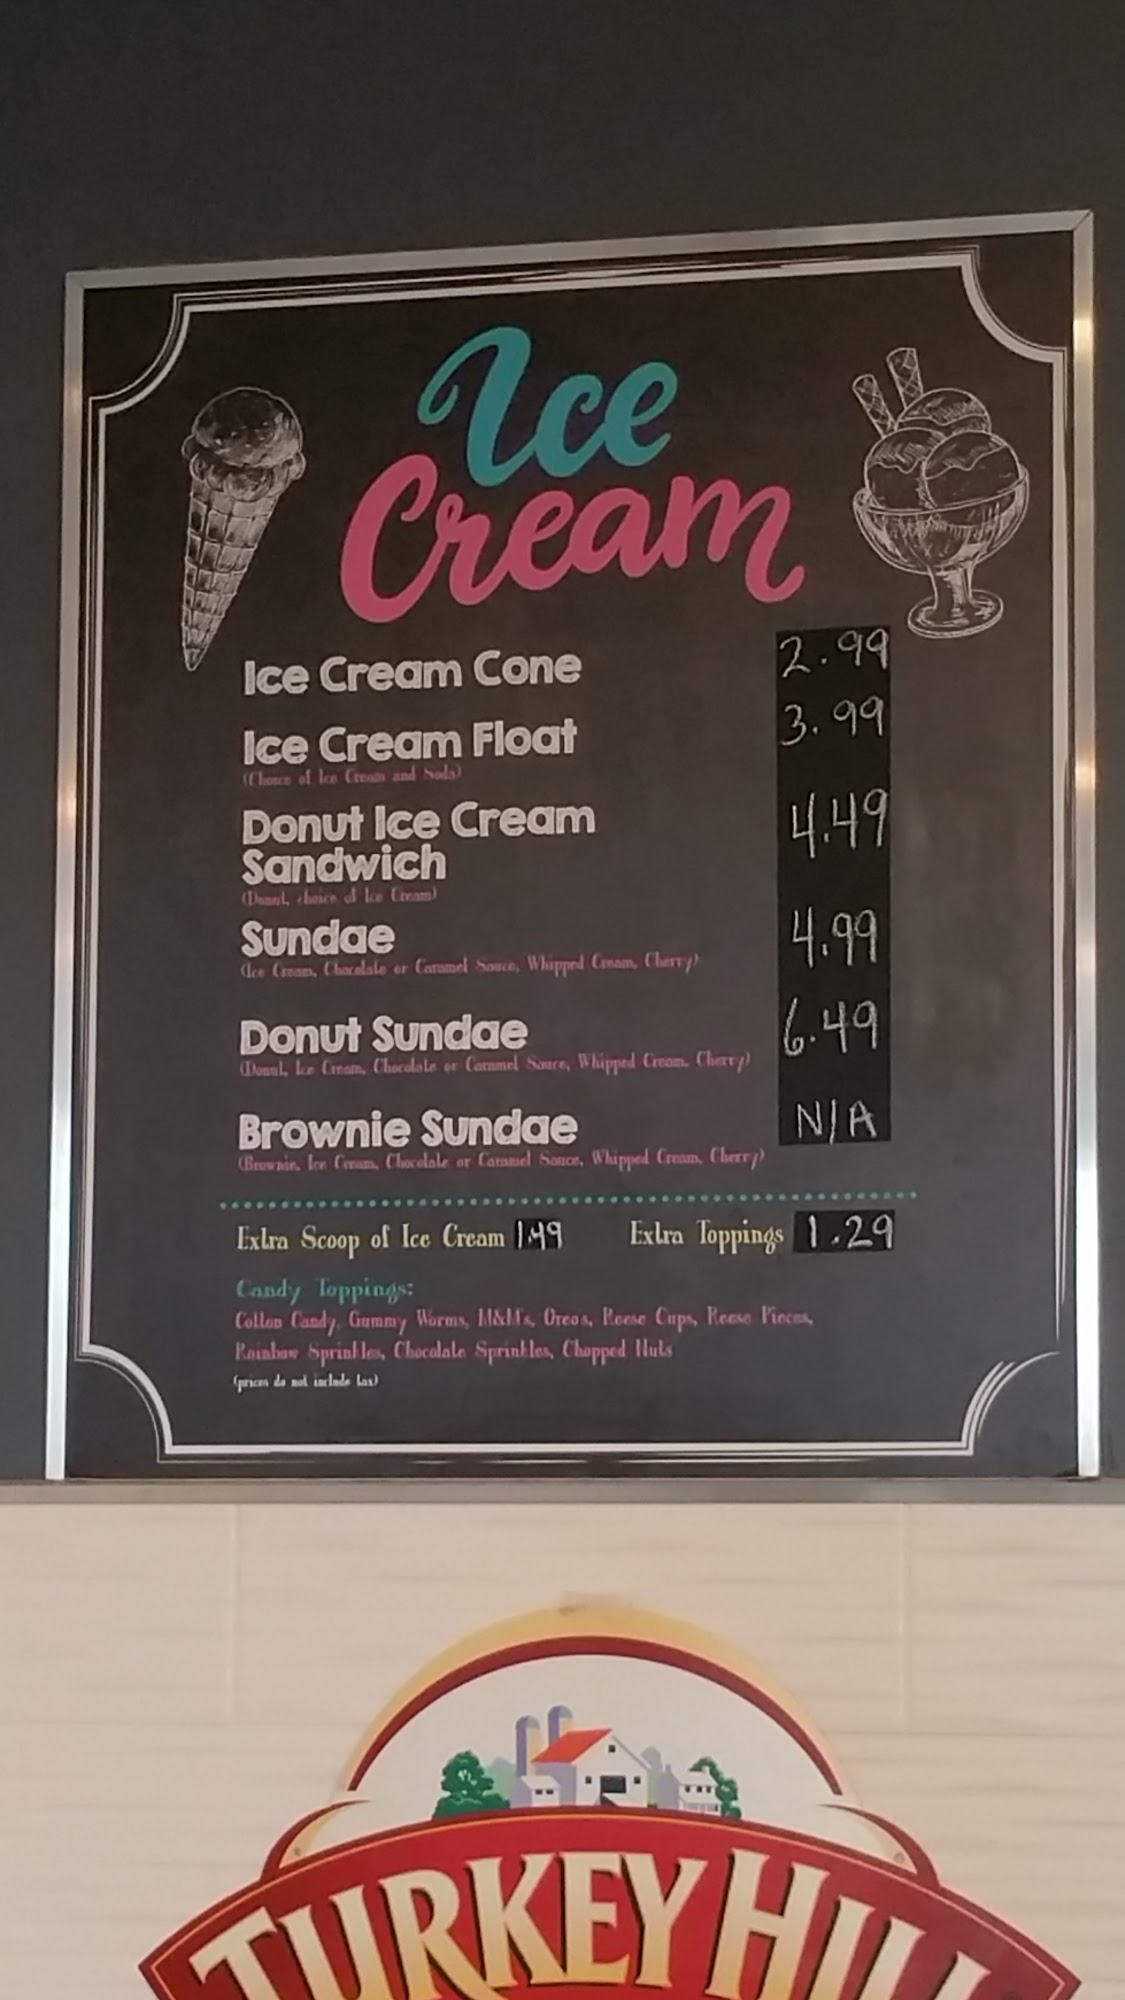 Ice
Cream
Ice Cream Cone 2.99
Ice Cream Float 3.99
(Choice of Ice Cream and Soda)
Donut Ice Cream 4.49
Sandwich
(Donut, choice of Ice Cream)
Sundae 4.99
(Ice Cream, Chocolate or Caramel Sauce, Whipped Cream, Cherry)
Donut Sundae 6.49
(Donut, Ice Cream, Chocolate or Caramel Sauce, Whipped Cream, Cherry)
Brownie Sundae N/A
(Brownie, Ice Cream, Chocolate or Caramel Sauce, Whipped Cream, Cherry)
Extra Scoop of Ice Cream 1.49 Extra Toppings 1.29
Candy Toppings:
Cotton Candy, Gummy Worms, M&M's, Oreos, Reese Cups, Reese Pieces,
Rainbow Sprinkles, Chocolate Sprinkles, Chopped Nuts
(prices do not include tax)
TURKEY HILL